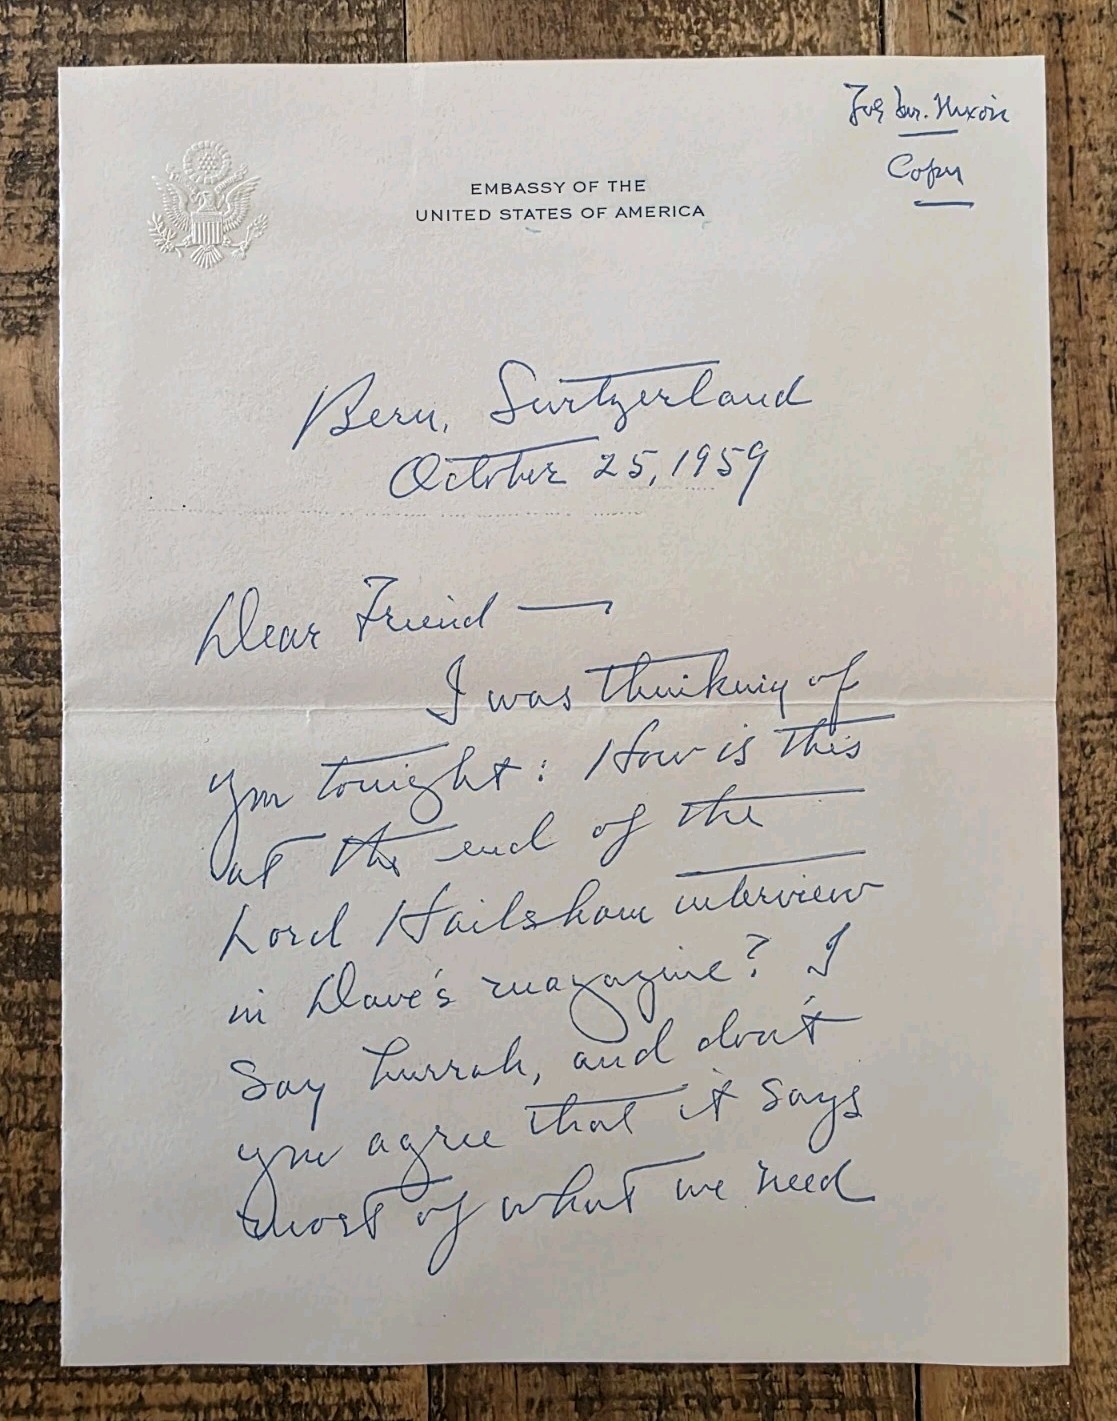 For Mr. Nixon
Copy
EMBASSY OF THE
UNITED STATES OF AMERICA
Bern, Switzerland
October 25, 1959
Dear Friend —
I was thinking of
you tonight: How is this
at the end of the
Lord Hailsham interview
in Dave's magazine? I
say hurrah, and don't
you agree that it says
most of what we need